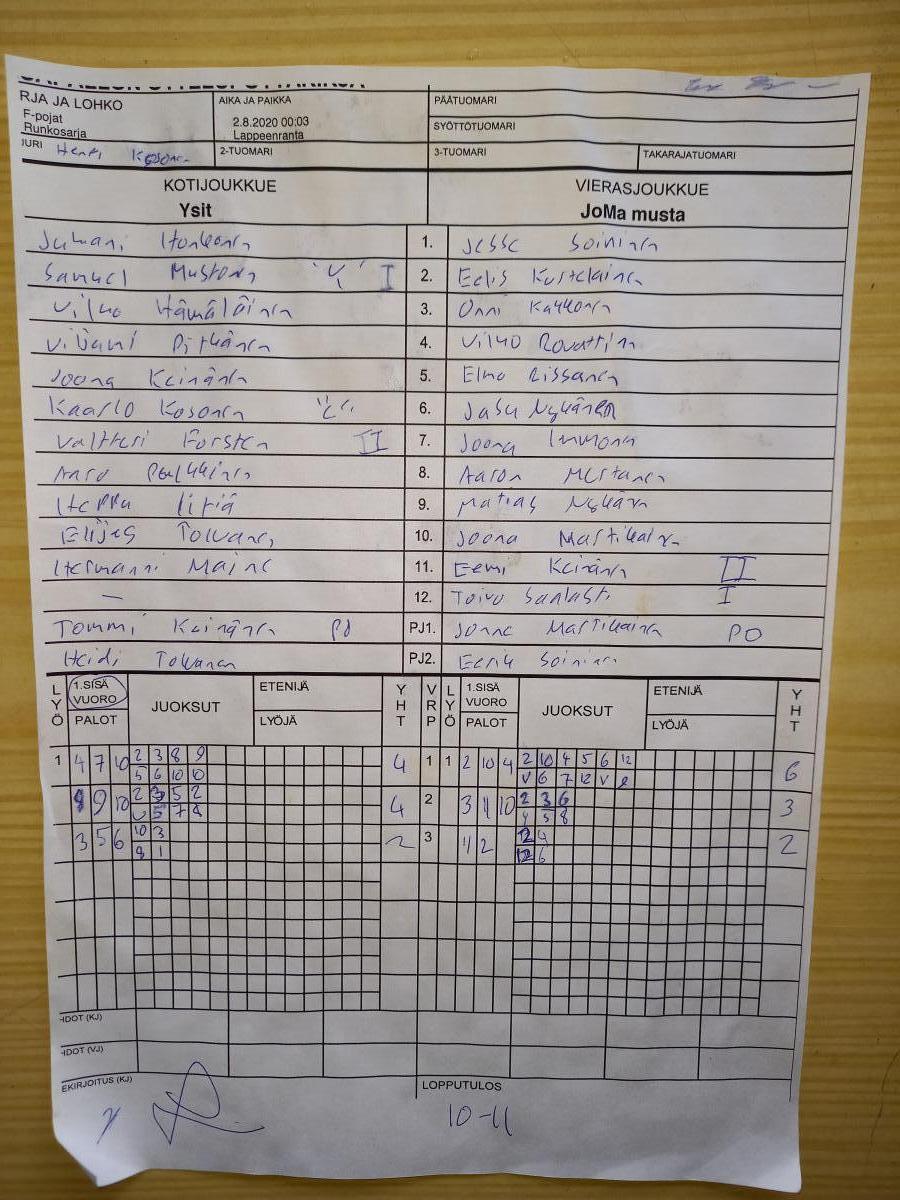 RJA JA LOHKO
F-pojat
Runkosarja
AIKA JA PAIKKA
2.8.2020 00:03
Lappeenranta
PÄÄTUOMARI
SYÖTTÖTUOMARI
JURI Henri Kosonen
2-TUOMARI
3-TUOMARI
TAKARAJATUOMARI
KOTIJOUKKUE
Ysit
VIERASJOUKKUE
JoMa musta
Juhani Honkonen 1. Jesse Soininen
Samuel Mustonen I 2. Eelis Kostelainen
Vilho Hämäläinen 3. Onni
Viljami Pitkänen 4. Vilho
Joona Keinänen 5. Elmo Rissanen
Kaarlo Kosonen "C" 6. Jasu Nykänen
Valtteri Forsten II 7. Joona Immonen
Aaro 8. Aaron Mertanen
9. Matias Nykänen
Elijas Tolvanen 10. Joona Martikainen
Hermanni Maine 11. Eemi Keinänen II
— 12. Toivo I
Tommi Keinänen PJ1. Jonne Martikainen PO
Heidi Tolvanen PJ2. Eerik Soininen
LYÖ 1.SISÄ VUORO PALOT JUOKSUT ETENIJÄ LYÖJÄ YHT VRP LYÖ 1.SISÄ VUORO PALOT JUOKSUT ETENIJÄ LYÖJÄ YHT
1 4 7 10 2 3 8 9 4 1 1 2 10 4 2 10 4 5 6 12 6
5 6 10 10 V 6 7 12 V
9 10 2 3 5 2 4 2 3 1 10 2 3 6 3
5 7 5 8
3 5 6 10 3 2 3 1 2 12 4 2
1 12 6
IDOT (KJ)
IDOT (VJ)
EKIRJOITUS (KJ)
LOPPUTULOS
10-11